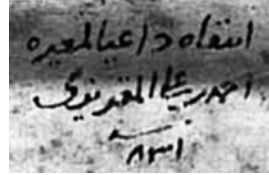 انتقاه داعيا لمعيره
احمد بن علي المقريزي
سنة ٨٣١